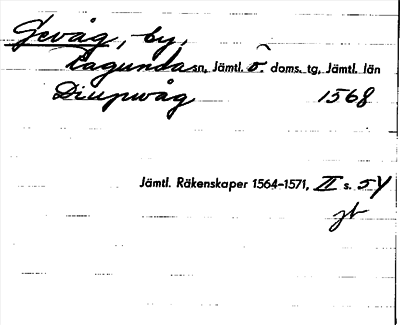 Gevåg, by,
Ragunda sn, Jämtl. ö. doms. tg, Jämtl. län
Diupwåg 1568
Jämtl. Räkenskaper 1564–1571, II s. 54